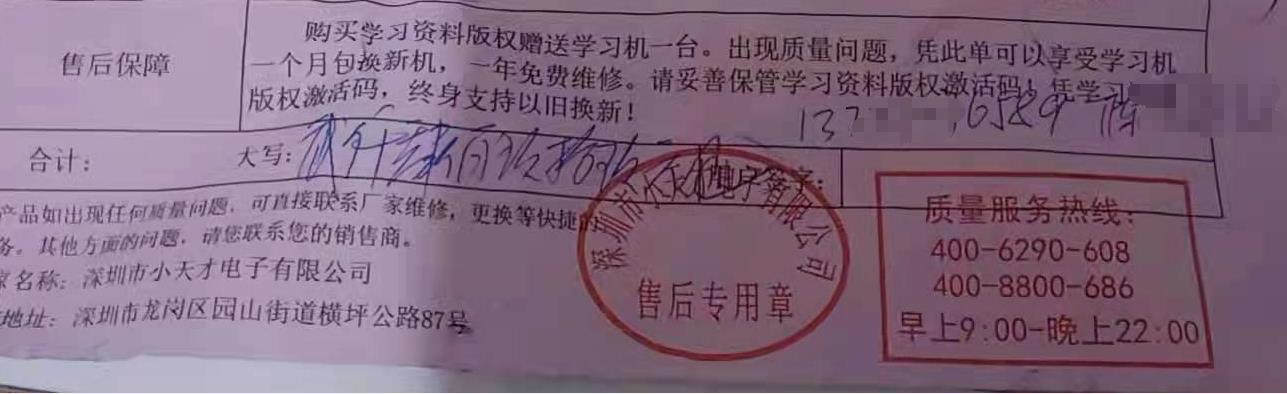 售后保障
购买学习资料版权赠送学习机一台。出现质量问题，凭此单可以享受学习机
一个月包换新机，一年免费维修。请妥善保管学习资料版权激活码！凭学习
版权激活码，终身支持以旧换新！
13
6589
合计：
大写：
签字：
产品如出现任何质量问题，可直接联系厂家维修，更换等快捷的
务。其他方面的问题，请您联系您的销售商。
家名称：深圳市小天才电子有限公司
地址：深圳市龙岗区园山街道横坪公路87号
深圳市小天才电子有限公司
售后专用章
质量服务热线：
400-6290-608
400-8800-686
早上9:00-晚上22:00